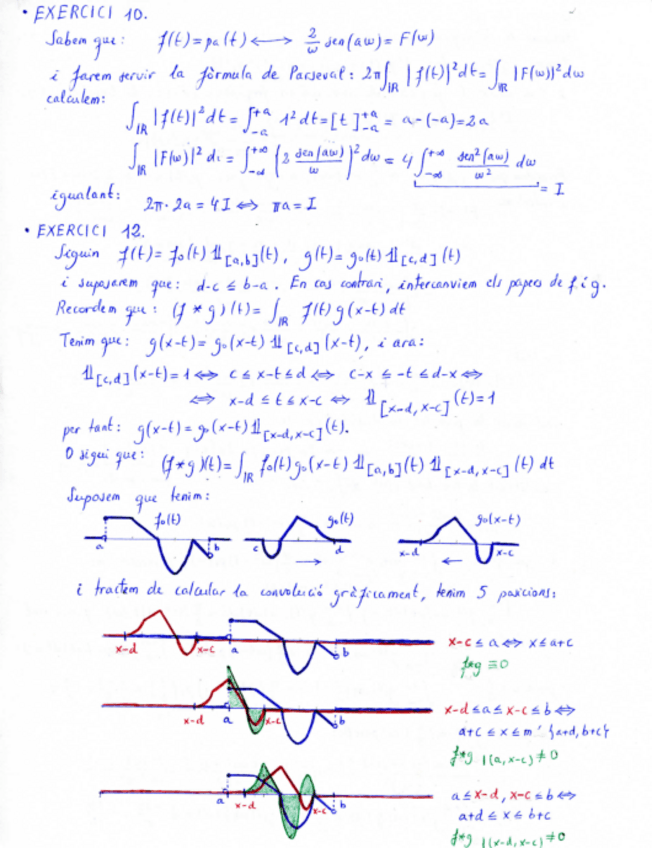 • EXERCICI 10.
Sabem que: f(t)=pa(t) ⟷ 2/ω sen(aω)=F(ω)
i farem servir la fórmula de Parseval: 2π∫_ℝ |f(t)|²dt=∫_ℝ |F(ω)|²dω
calculem:
∫_ℝ |f(t)|²dt = ∫_{-a}^{+a} 1²dt=[t]_{-a}^{+a} = a-(-a)=2a
∫_ℝ |F(ω)|² d. = ∫_{-∞}^{+∞} (2 sen(aω)/ω)² dω = 4∫_{-∞}^{+∞} sen²(aω)/ω² dω
= I
igualant: 2π·2a = 4I ⟺ πa=I
• EXERCICI 12.
Siguin f(t)=f₀(t) 𝟙_[a,b](t), g(t)=g₀(t) 𝟙_[c,d](t)
i suposarem que: d-c ≤ b-a. En cas contrari, intercanviem els papers de f i g.
Recordem que: (f * g)(t)=∫_ℝ f(t) g(x-t) dt
Tenim que: g(x-t)=g₀(x-t) 𝟙_[c,d](x-t), i ara:
𝟙_[c,d](x-t)=1 ⟺ c ≤ x-t ≤ d ⟺ c-x ≤ -t ≤ d-x ⟺
⟺ x-d ≤ t ≤ x-c ⟺ 𝟙_[x-d, x-c](t)=1
per tant: g(x-t)=g₀(x-t) 𝟙_[x-d,x-c](t).
O sigui que: (f*g)(t)=∫_ℝ f₀(t)g₀(x-t) 𝟙_[a,b](t) 𝟙_[x-d,x-c](t) dt
Suposem que tenim:
f₀(t) g₀(t) g₀(x-t)
a b c d x-d x-c
i tractem de calcular la convolució gràficament, tenim 5 posicions:
x-d x-c a b x-c ≤ a ⟺ x ≤ a+c
f*g ≡ 0
x-d a x-c b x-d ≤ a ≤ x-c ≤ b ⟺
a+c ≤ x ≤ m´ {a+d, b+c}
f*g |(a, x-c) ≠ 0
a x-d x-c b a ≤ x-d, x-c ≤ b ⟺
a+d ≤ x ≤ b+c
f*g |(x-d, x-c) ≠ 0